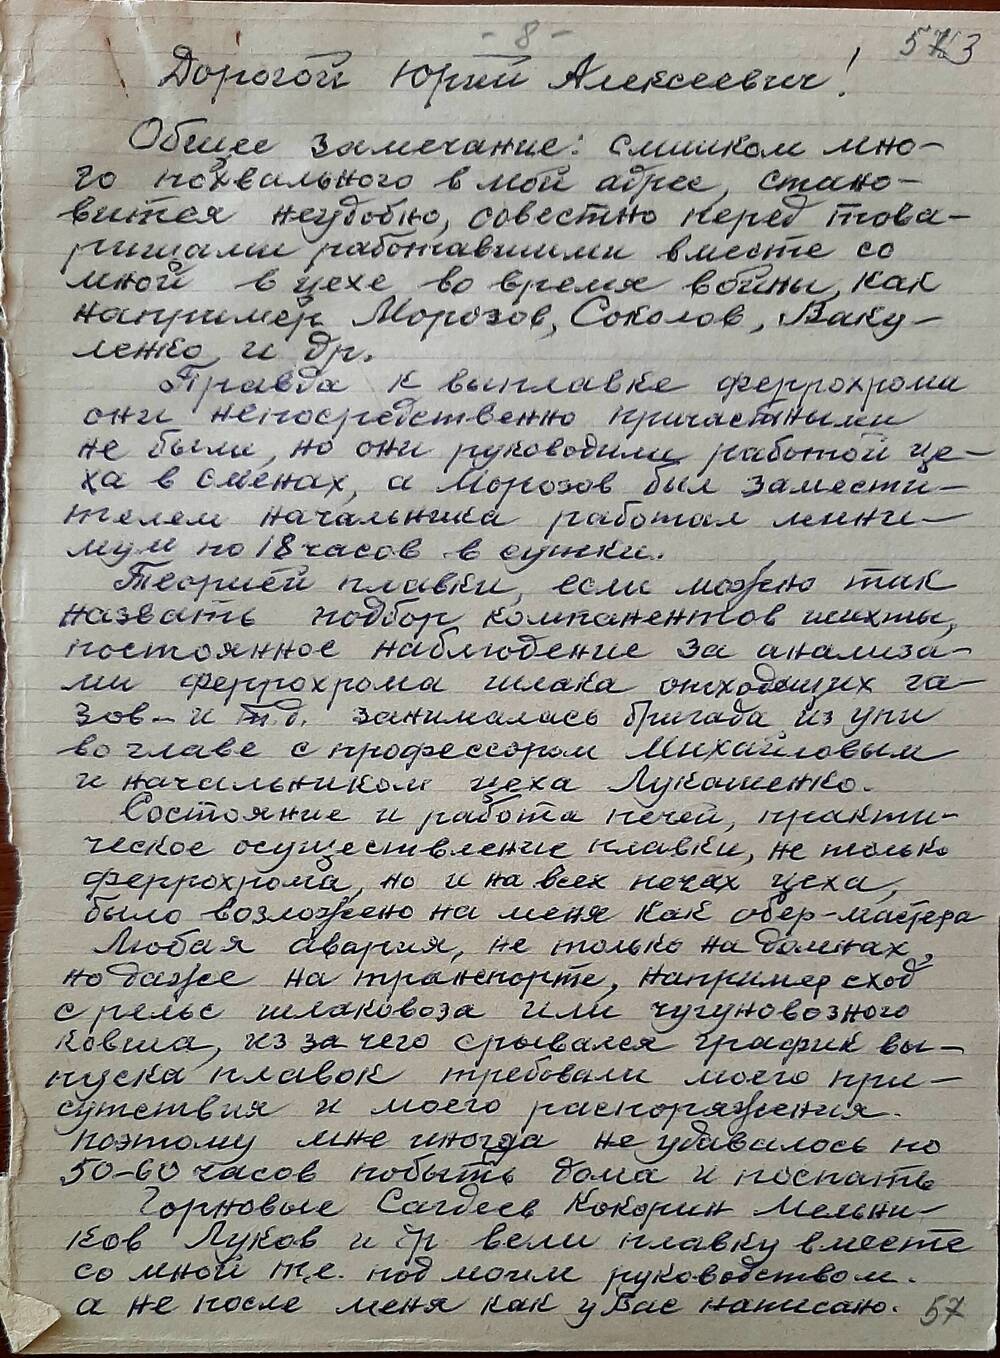 - 8 -
573
Дорогой Юрий Алексеевич!
Общее замечание: слишком мно-
го похвального в мой адрес, стано-
вится неудобно, совестно перед това-
рищами работавшими вместе со
мной в цехе во время войны, как
например Морозов, Соколов, Ваку-
ленко, и др.
Правда к выплавке феррохрома
они непосредственно причастными
не были, но они руководили работой це-
ха в сменах, а Морозов был замести-
телем начальника работал мини-
мум по 18 часов в сутки.
Теорией плавки, если можно так
назвать подбор компанентов шихты,
постоянное наблюдение за анализа-
ми феррохрома шлака отходящих га-
зов - и т.д. занималась бригада из упи
во главе с профессором Михайловым
и начальником цеха Лукашенко.
Состояние и работа печей, практи-
ческое осуществление плавки, не только
феррохрома, но и на всех печах цеха,
было возложено на меня как обер-мастера
Любая авария, не только на домнах,
но даже на транспорте, например сход
с рельс шлаковоза или чугуновозного
ковша, из за чего срывался график вы-
пуска плавок требовали моего при-
сутствия и моего распоряжения.
поэтому мне иногда не удавалось по
50-60 часов побыть дома и поспать
Горновые Сагдеев Кокорин Мельни-
ков Луков и др вели плавку вместе
со мной т.е. под моим руководством.
а не после меня как у Вас написано.
57